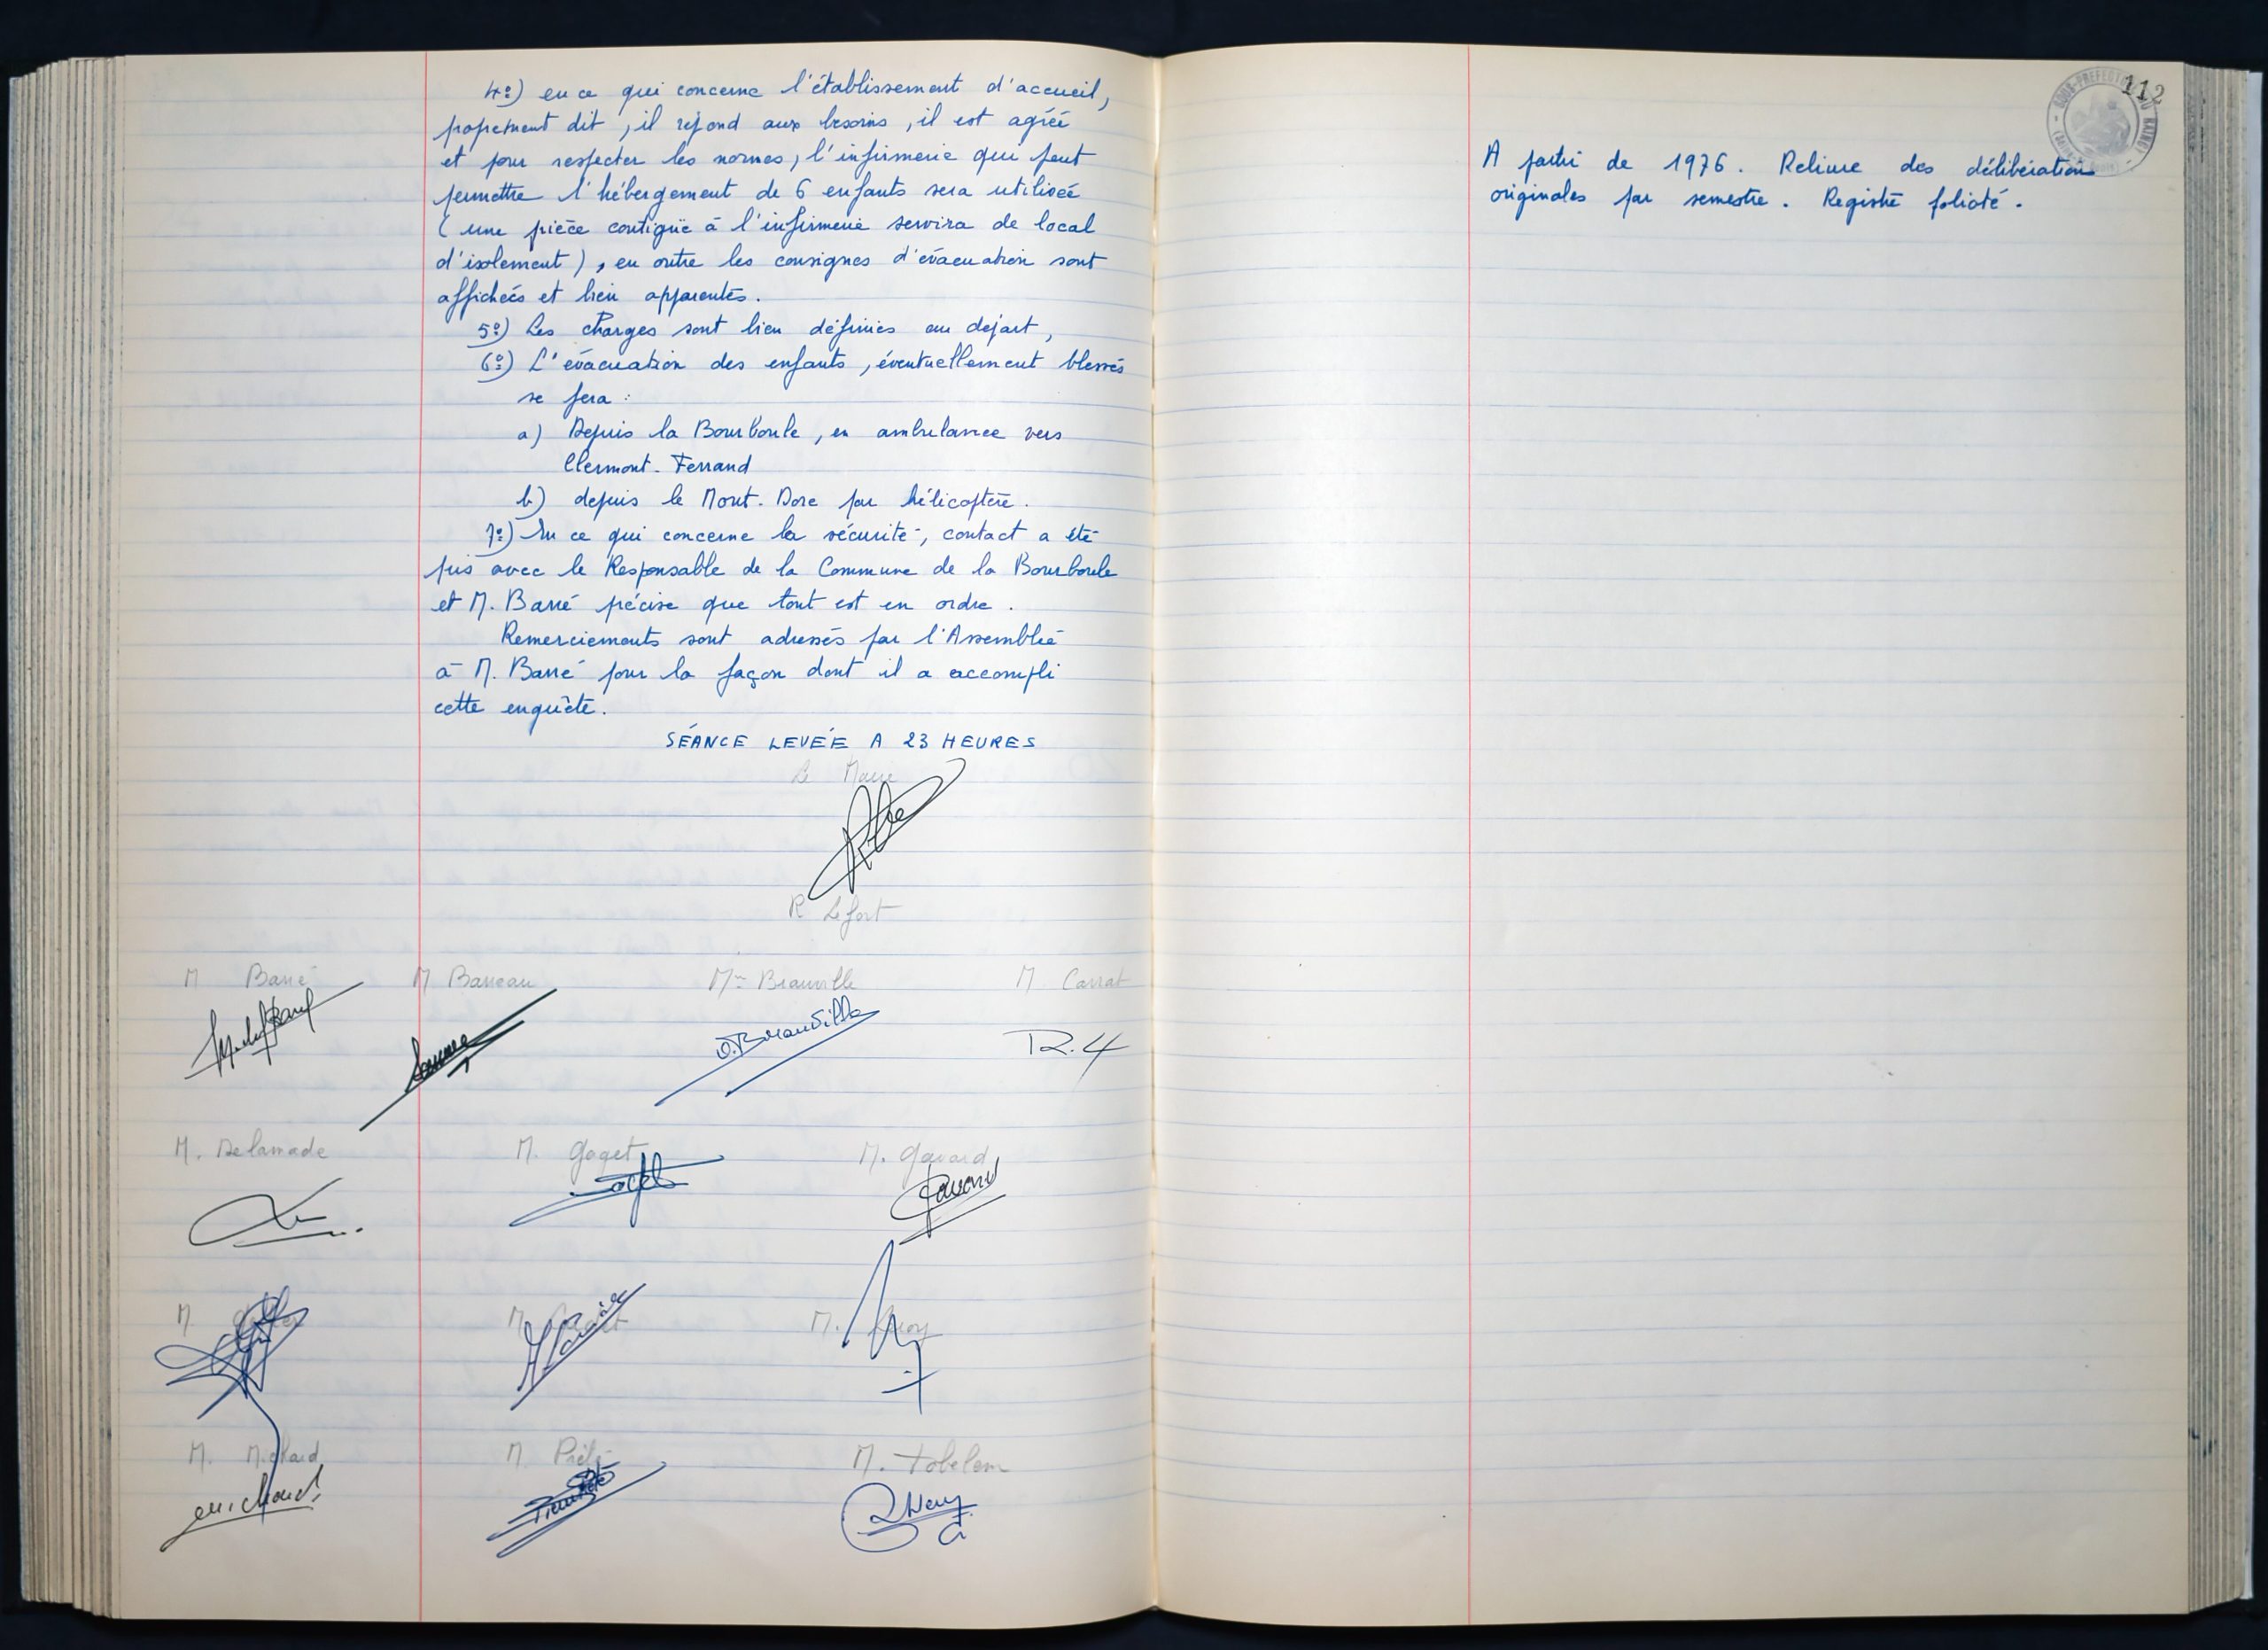 4º) en ce qui concerne l'établissement d'accueil,
proprement dit, il répond aux besoins, il est agréé
et pour respecter les normes, l'infirmerie qui peut
permettre l'hébergement de 6 enfants sera utilisée
(une pièce contiguë à l'infirmerie servira de local
d'isolement), en outre les consignes d'évacuation sont
affichées et bien apparentes.
5º) Les charges sont bien définies au départ,
6º) L'évacuation des enfants, éventuellement blessés
se fera :
a) Depuis la Bourboule, en ambulance vers
Clermont-Ferrand
b) depuis le Mont-Dore par hélicoptère.
7º) En ce qui concerne la sécurité, contact a été
pris avec le Responsable de la Commune de la Bourboule
et M. Barré précise que tout est en ordre.
Remerciements sont adressés par l'Assemblée
à M. Barré pour la façon dont il a accompli
cette enquête.
SÉANCE LEVÉE A 23 HEURES
Le Maire
R Lefort
M Barré M Barreau Mme Branville M Carrat
D.Branville
M. Delamade M. Goget M. Gavard
Gavard
M M M.
M. Michard M Piété M. Tobelem
michard
112
A partir de 1976. Reliure des délibérations
originales par semestre. Registre folioté.